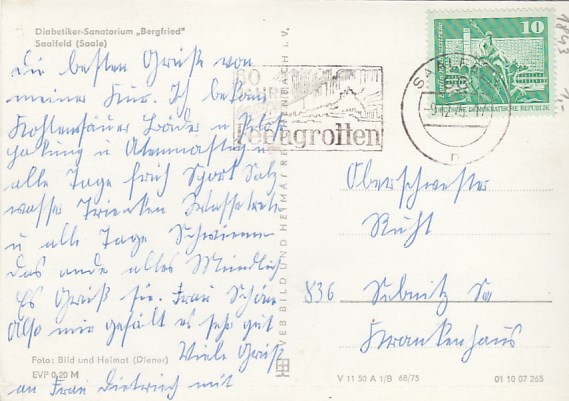 Diabetiker-Sanatorium „Bergfried“
Saalfeld (Saale)
die besten Grüße von
meiner Kur. Ich bekomme
Kohlensäure Bäder u
u Atemnastik u
alle Tage früh Sport Salz
wasser Trinken
u alle Tage Schwimm
das ande alles Mündlich
Es Grüß Sie. Frau Schön
Also mir gefält es sehr gut
Viele Grüß
an Frau Dietrich mit
Foto: Bild und Heimat (Diener)
EVP 0,20 M
VEB BILD UND HEIMAT REICHENBACH I. V.
60
JAHRE
Feengrotten
10
DEUTSCHE DEMOKRATISCHE REPUBLIK
1843
1,-
Oberschwester
Ruht
836 Sebnitz Sa
Krankenhaus
V 11 50 A 1/B 68/75
01 10 07 265